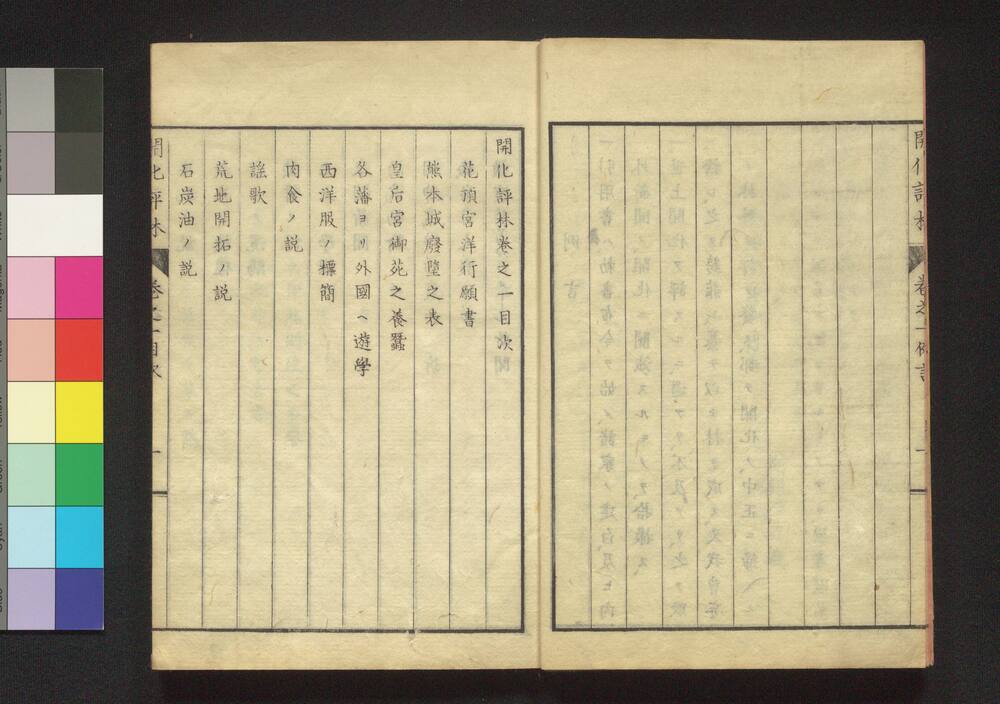 開化評林
卷之一例言
開化評林卷之一目次
花頂宮洋行願書
熊本城廢墮之表
皇后宮御苑之養蠶
各藩ヨリ外國ヘ遊學
西洋服ノ標簡
肉食ノ説
謡歌
荒地開拓ノ説
石炭油ノ説
開化評林
卷之一目次
一